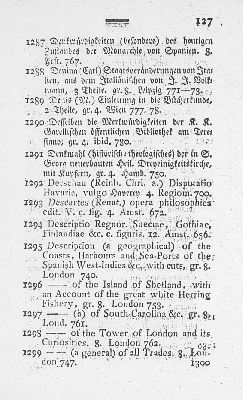 127
1287 Denkwürdigkeiten (besondere) des heutigen
Zustandes der Monarchie von Spanien. 8.
Frft. 767.
1288 Denina (Carl) Staatsveränderungen von Ita-
lien, aus dem Italiänischen von J. J. Volk-
mann, 3 Theile. gr. 8. Leipzig 771—73.
1289 Denis (M.) Einleitung in die Bücherkunde,
2 Theile, gr. 4. Wien 777. 78.
1290 Desselben die Merkwürdigkeiten der K. K.
Garellischen öffentlichen Bibliothek am There
siano; gr. 4. ibid. 780.
1291 Denkmahl (historisch-theologisches) der in S.
Georg neuerbauten Heil. Dreyeinigkeitskirche,
mit Kupfern, gr. 4. Hamb. 750.
1292 Derschau (Reinh. Chri. a.) Disputatio
Havuria, vulgo Haverey 4. Regiom. 700.
1293 Descartes (Renat.) opera philosophica
edit. V. c. fig. 4. Amst. 672.
1294 Descriptio Regnor. Sueciae, Gothiae,
Finlandiae &c. c. figuris. 12. Amst. 656.
1295 Description (a geographical) of the
Coasts, Harbours and Sea-Ports of the
Spanish West-Indies &c., with cuts, gr. 8.
London 740.
1296 —— of the Island of Shetland, with
an Account of the great white Herring
Fishery, gr. 8. London 753.
1297 —— (a) of South-Carolina &c. gr. 8.
Lond. 761.
1298 —— of the Tower of London and its
Curiosities. 8. London 762.
1299 —— (a general) of all Trades. 8. Lon-
don 747.
1300